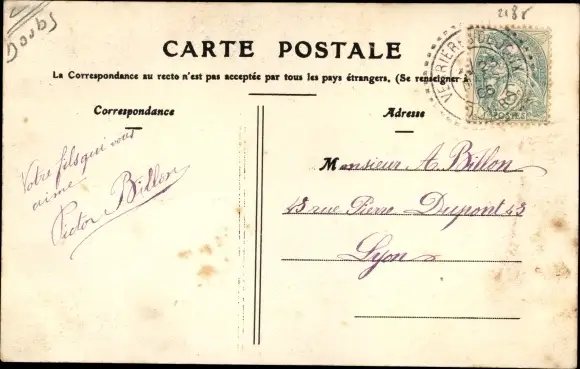 Doubs
2188
CARTE POSTALE
La Correspondance au recto n'est pas acceptée par tous les pays étrangers. (Se renseigner à
Correspondance
Adresse
Votre fils qui vous
aime
Victor Billon
Monsieur A. Billon
43 rue Pierre Dupont 43
Lyon
POSTES